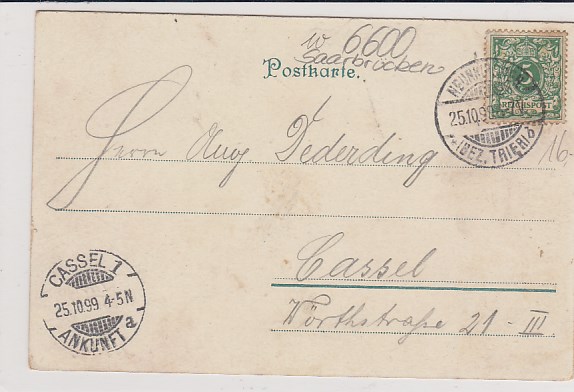 W 6600
Saarbrücken
Postkarte.
5
REICHSPOST
25.10.99
(BEZ. TRIER) b
16-
Herrn Aug Dederding
Cassel
Wörthstraße 21 - III
CASSEL 1
25.10.99 4-5N
ANKUNFT
a